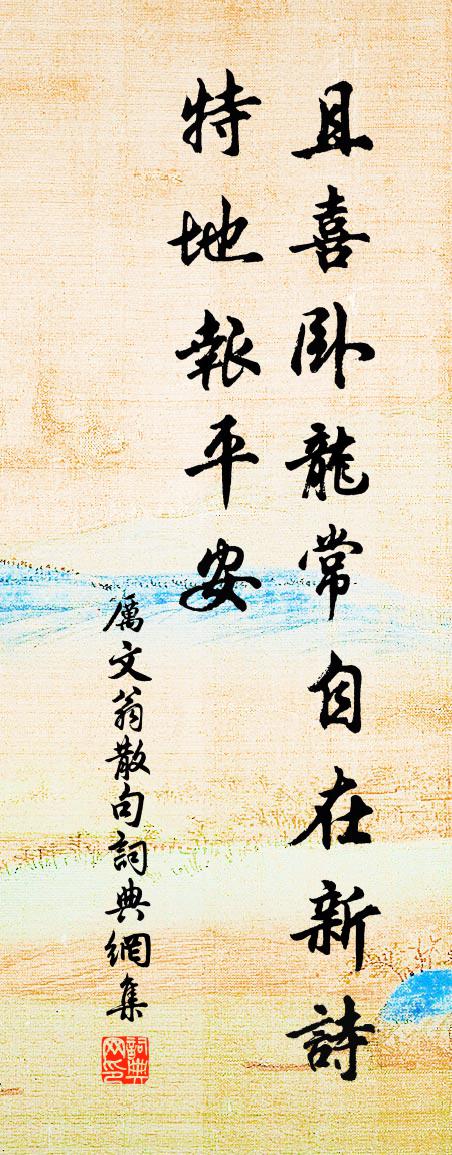 且喜卧龍常自在新詩
特地報平安
厲文翁散句詞典網集
詞典網印